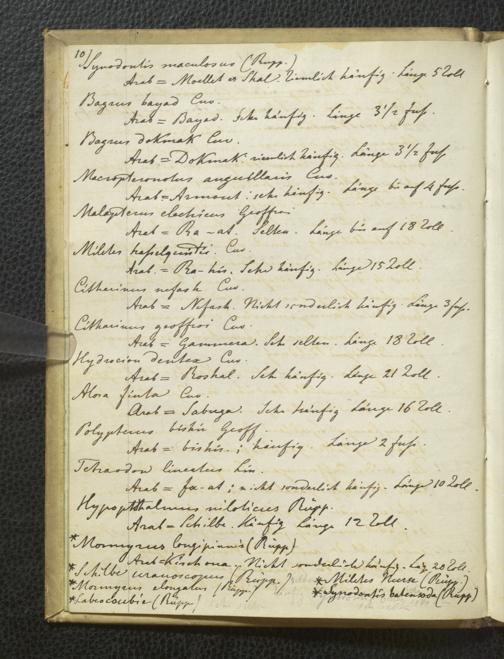 10)
Synodontis maculosus (Rüpp.)
Arab = Moellet es Shal ziemlich häufig. Länge 5 Zoll
Bagrus bayad Cuv.
Arab = Bayad. Sehr häufig. Länge 3 1/2 fuß.
Bagrus dokmak Cuv.
Arab = Dokmak ziemlich häufig. Länge 3 1/2 fuß
Macropteronotus anguillaris Cuv.
Arab = Armout: sehr häufig. Länge bis auf 4 fuß.
Malapterus electricus Geoffroi
Arab = Ra-at. Selten. Länge bis auf 18 Zoll.
Miletes hasselquistii. Cuv.
Arab. = Ra-his. Sehr häufig. Länge 15 Zoll.
Citharinus nefash Cuv.
Arab = Nefash. Nicht sonderlich häufig. Länge 3 fuß.
Citharinus geoffroi Cuv.
Arab = Gammera. Seh selten. Länge 18 Zoll.
Hydrocion dentex Cuv.
Arab = Roshal. Seh häufig. Länge 21 Zoll.
Alosa finta Cuv.
Arab = Sabuga. Sehr häufig Länge 16 Zoll.
Polypterus bishir Geoff.
Arab = bishir.; häufig. Länge 2 fuß.
Tetraodon lineatus Lin.
Arab = fa-at; nicht sonderlich häufig. Länge 10 Zoll.
Hypophthalmus niloticus Rüpp.
Arab = Schilbe. Häufig Länge 12 Zoll.
* Mormyrus longipinnis (Rüpp)
Arab = Kischoua. Nicht sonderlich häufig. Lag 20 Zoll.
* Schilbe uranoscopus (Rüpp.) * Miletes Nurse (Rüpp)
* Mormyrus elongatus (Rüpp.) * Synodontis batensoda (Rüpp)
* Labeo coubie (Rüpp)